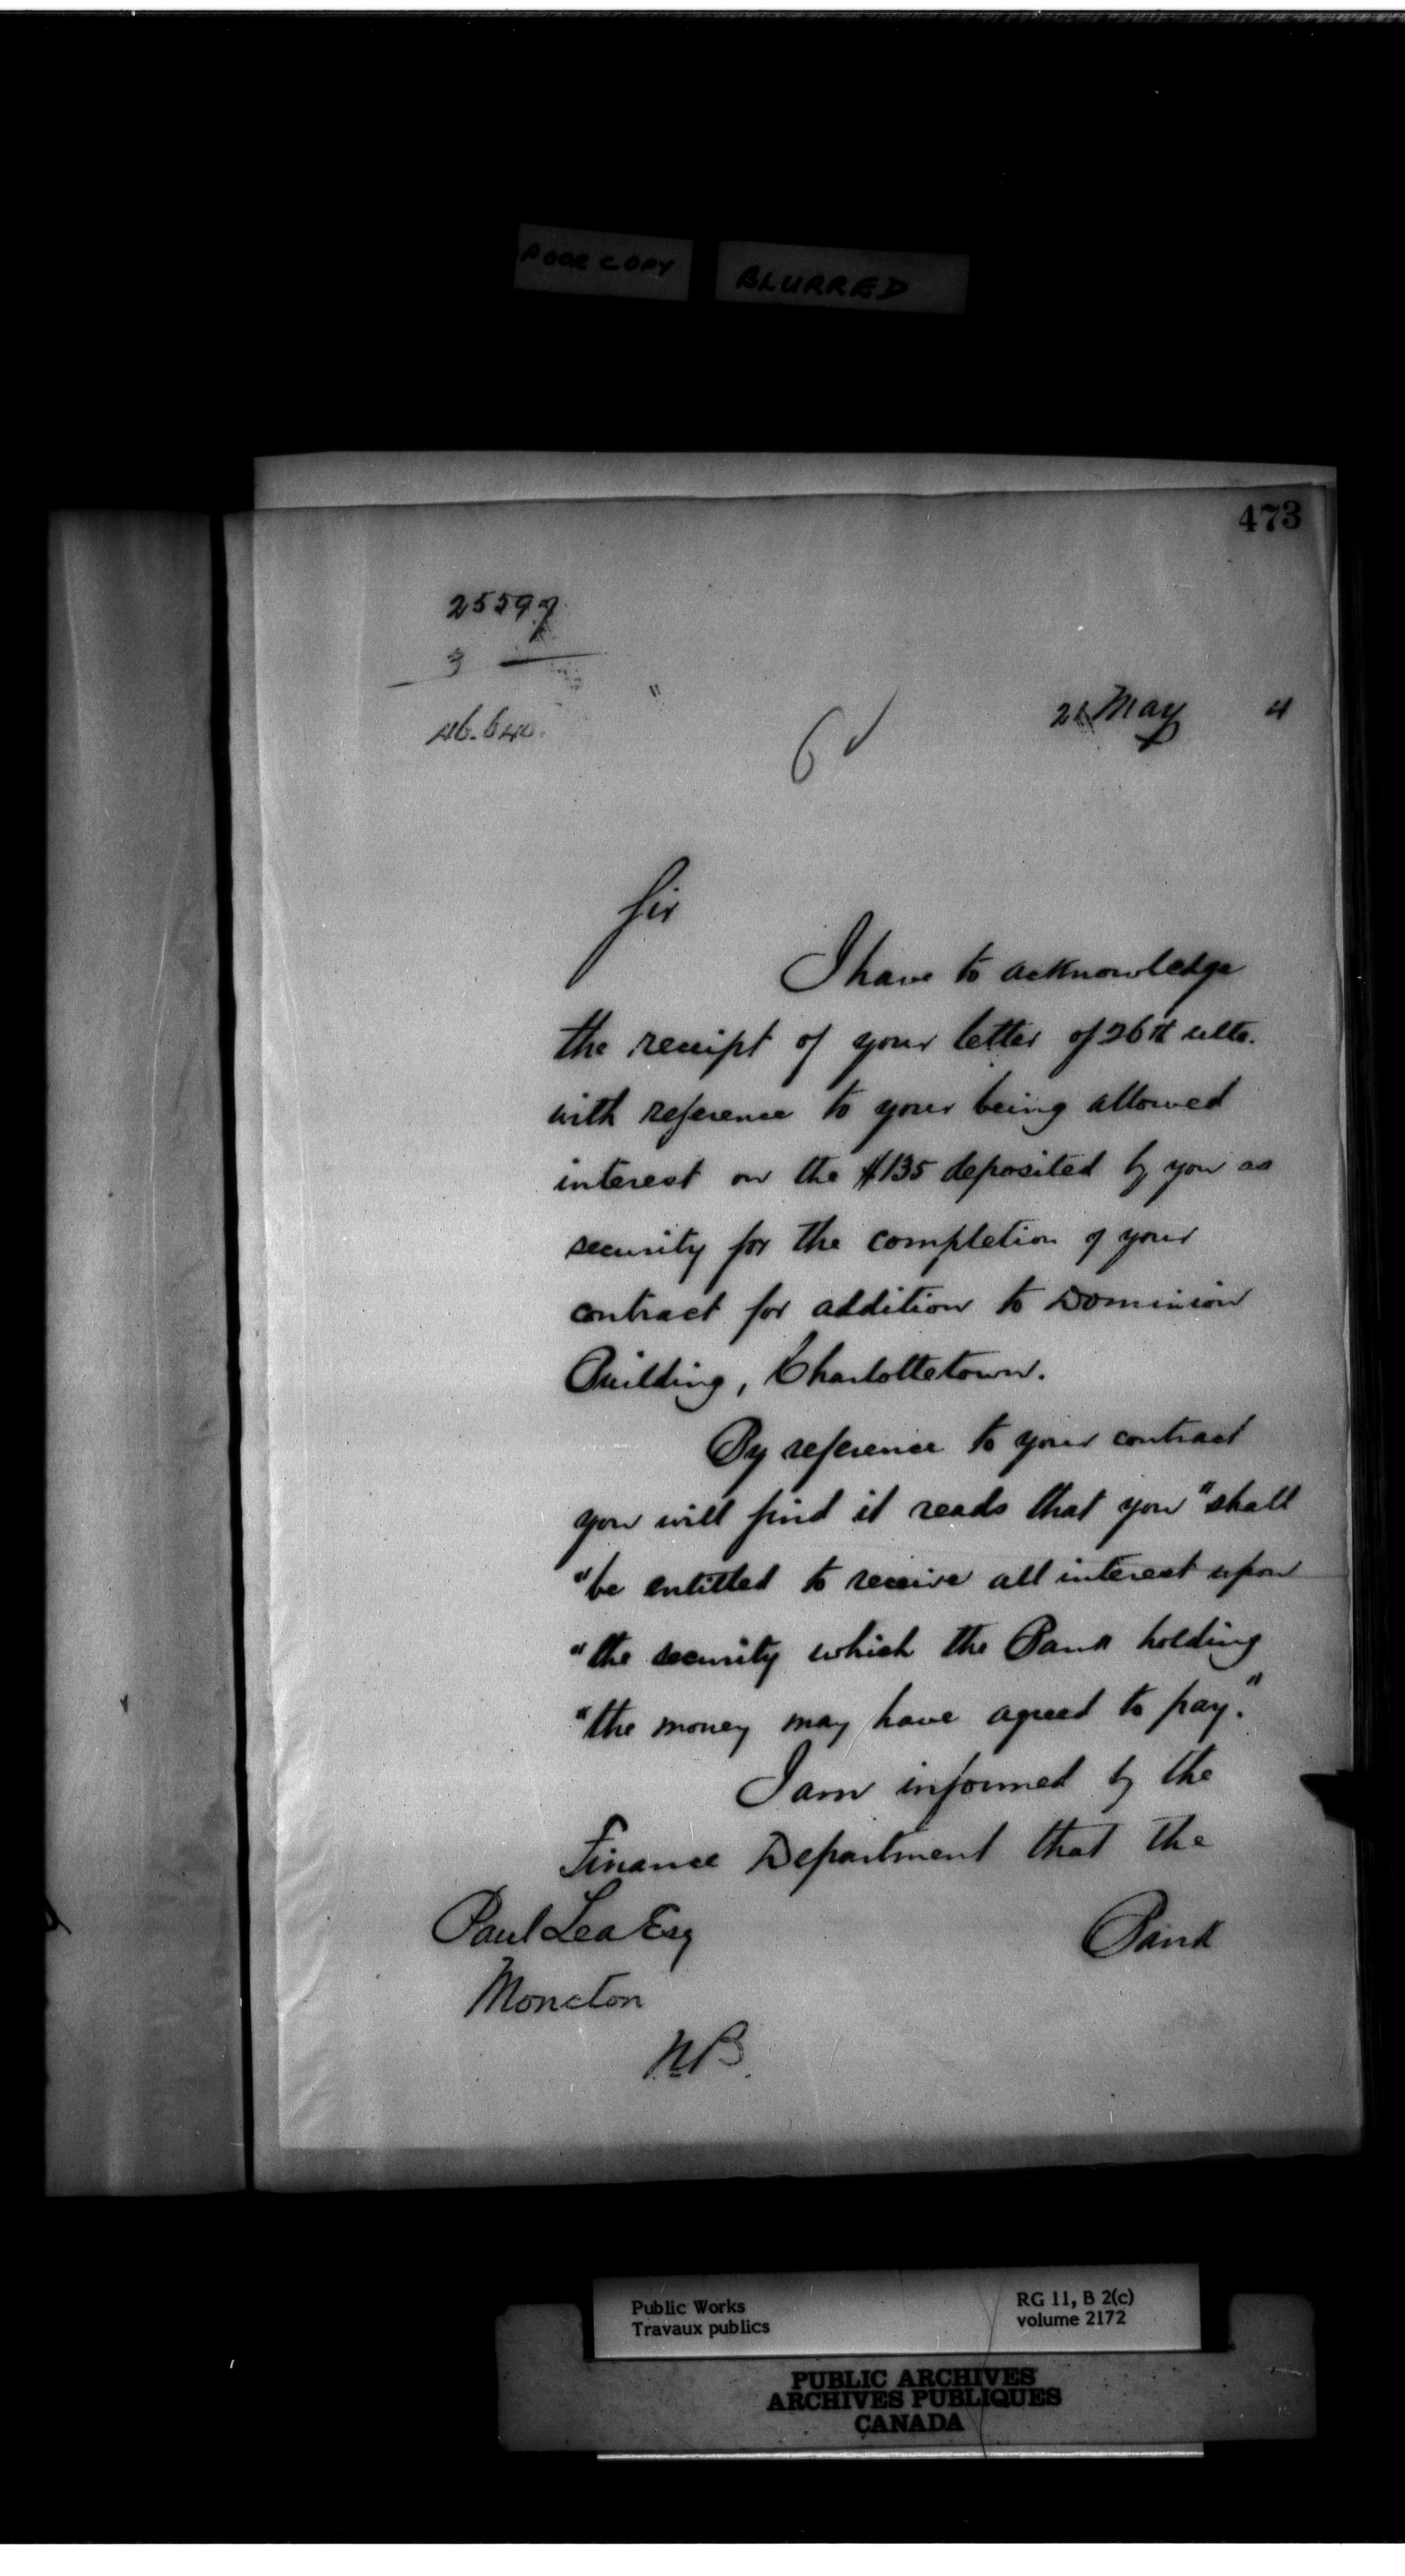 POOR COPY BLURRED
473
25597
3
46.640.
21 May 4
6
Sir
I have to acknowledge
the receipt of your letter of 26th ulto.
with reference to your being allowed
interest on the $135 deposited by you as
security for the completion of your
contract for addition to Dominion
Building, Charlottetown.
By reference to your contract
you will find it reads that you "shall
"be entitled to receive all interest upon
"the security which the Bank holding
"the money may have agreed to pay."
I am informed by the
Finance Department that the
Bank
Paul Lea Esq
Moncton
N.B.
Public Works
Travaux publics
RG 11, B 2(c)
volume 2172
PUBLIC ARCHIVES
ARCHIVES PUBLIQUES
CANADA